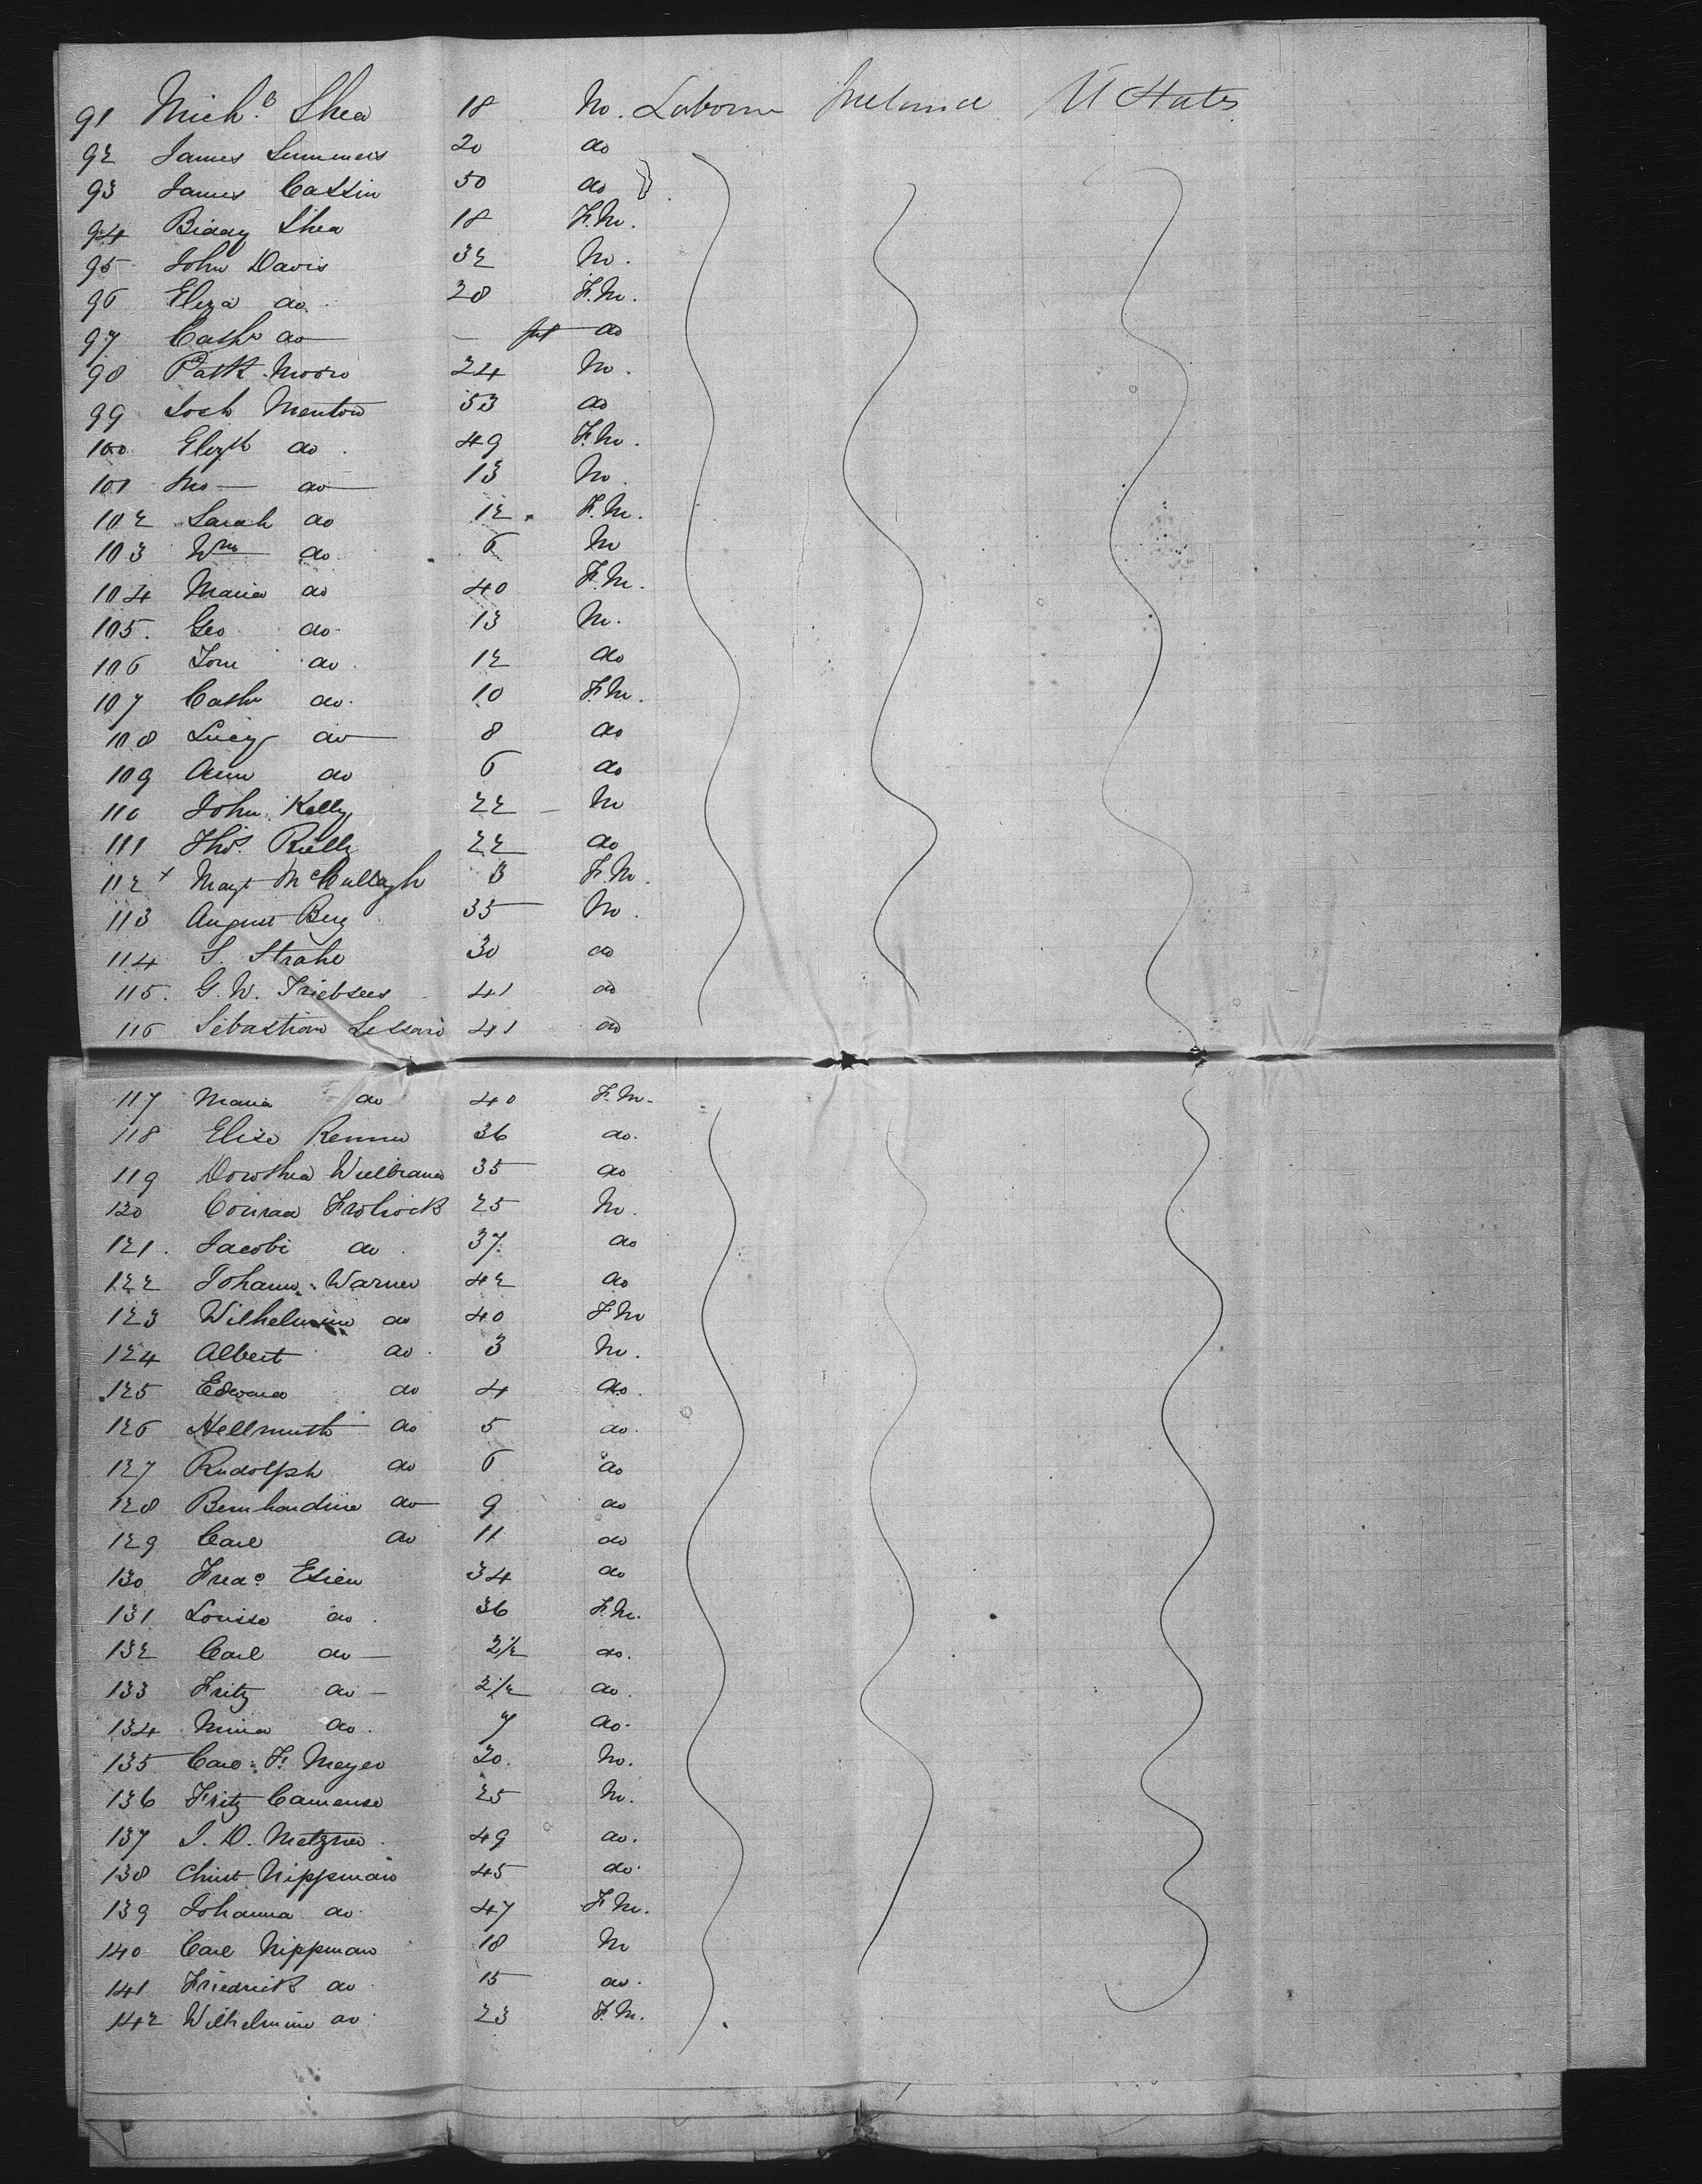 91 Michl Shea 18 M. Laborer Ireland U States
92 James Summers 20 do
93 James Cassin 50 do }
94 Biddy Shea 18 F.M.
95 John Davis 32 M.
96 Eliza do 28 F.M.
97 Cath do — Inft do
98 Patk Moore 24 M.
99 Josh Menton 53 do
100 Elizth do 49 F.M.
101 Jno do 13 M.
102 Sarah do 12 F.M.
103 Wm do 6 M
104 Maria do 40 F.M.
105. Geo do 13 M.
106 Tom do 12 do
107 Cath do 10 F.M.
108 Lucy do 8 do
109 Ann do 6 do
110 John Kelly 22 M
111 Thos. Rielly 22 do
112 x Magt McCullagh 3 F.M.
113 August Berg 35 M.
114 S. Strahe 30 do
115. G. W. Triebsees 41 do
116 Sebastian 41 do
117 Maria do 40 F.M.
118 Elise 36 do.
119 Dorothea 35 do
120 Conrad Frohock 25 M.
121. Jacobi do 37 do
122 Johann Warner 42 do
123 Wilhelmine do 40 F.M
124 Albert do 3 M.
125 Edward do 4 do.
126 Hellmuth do 5 do.
127 Rudolph do 6 do
128 Bernhardine do 9 do
129 Carl do 11 do
130 Fredc Esien 34 do
131 Louise do 36 F.M.
132 Carl do 2½ do.
133 Fritz do 2½ do.
134 Mina do. 7 do.
135 Carl F. Meyer 20. M.
136 Fritz Camense 25 M.
137 J. D. Metzner 49 do.
138 Christ Nippman 45 do.
139 Johanna do. 47 F.M.
140 Carl Nippman 18 M
141 Friedrick do 15 do.
142 Wilhelmine do 23 F.M.